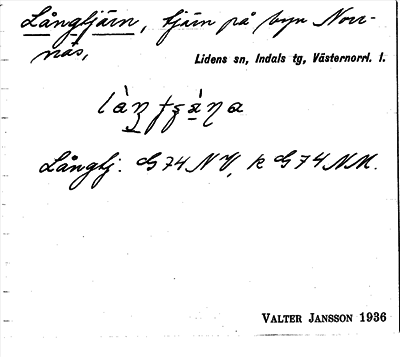 Långtjärn, tjärn på byn Norr-
näs,
Lidens sn, Indals tg, Västernorrl. l.
Långtj. G 74 NV, k G 74 NM.
VALTER JANSSON 1936